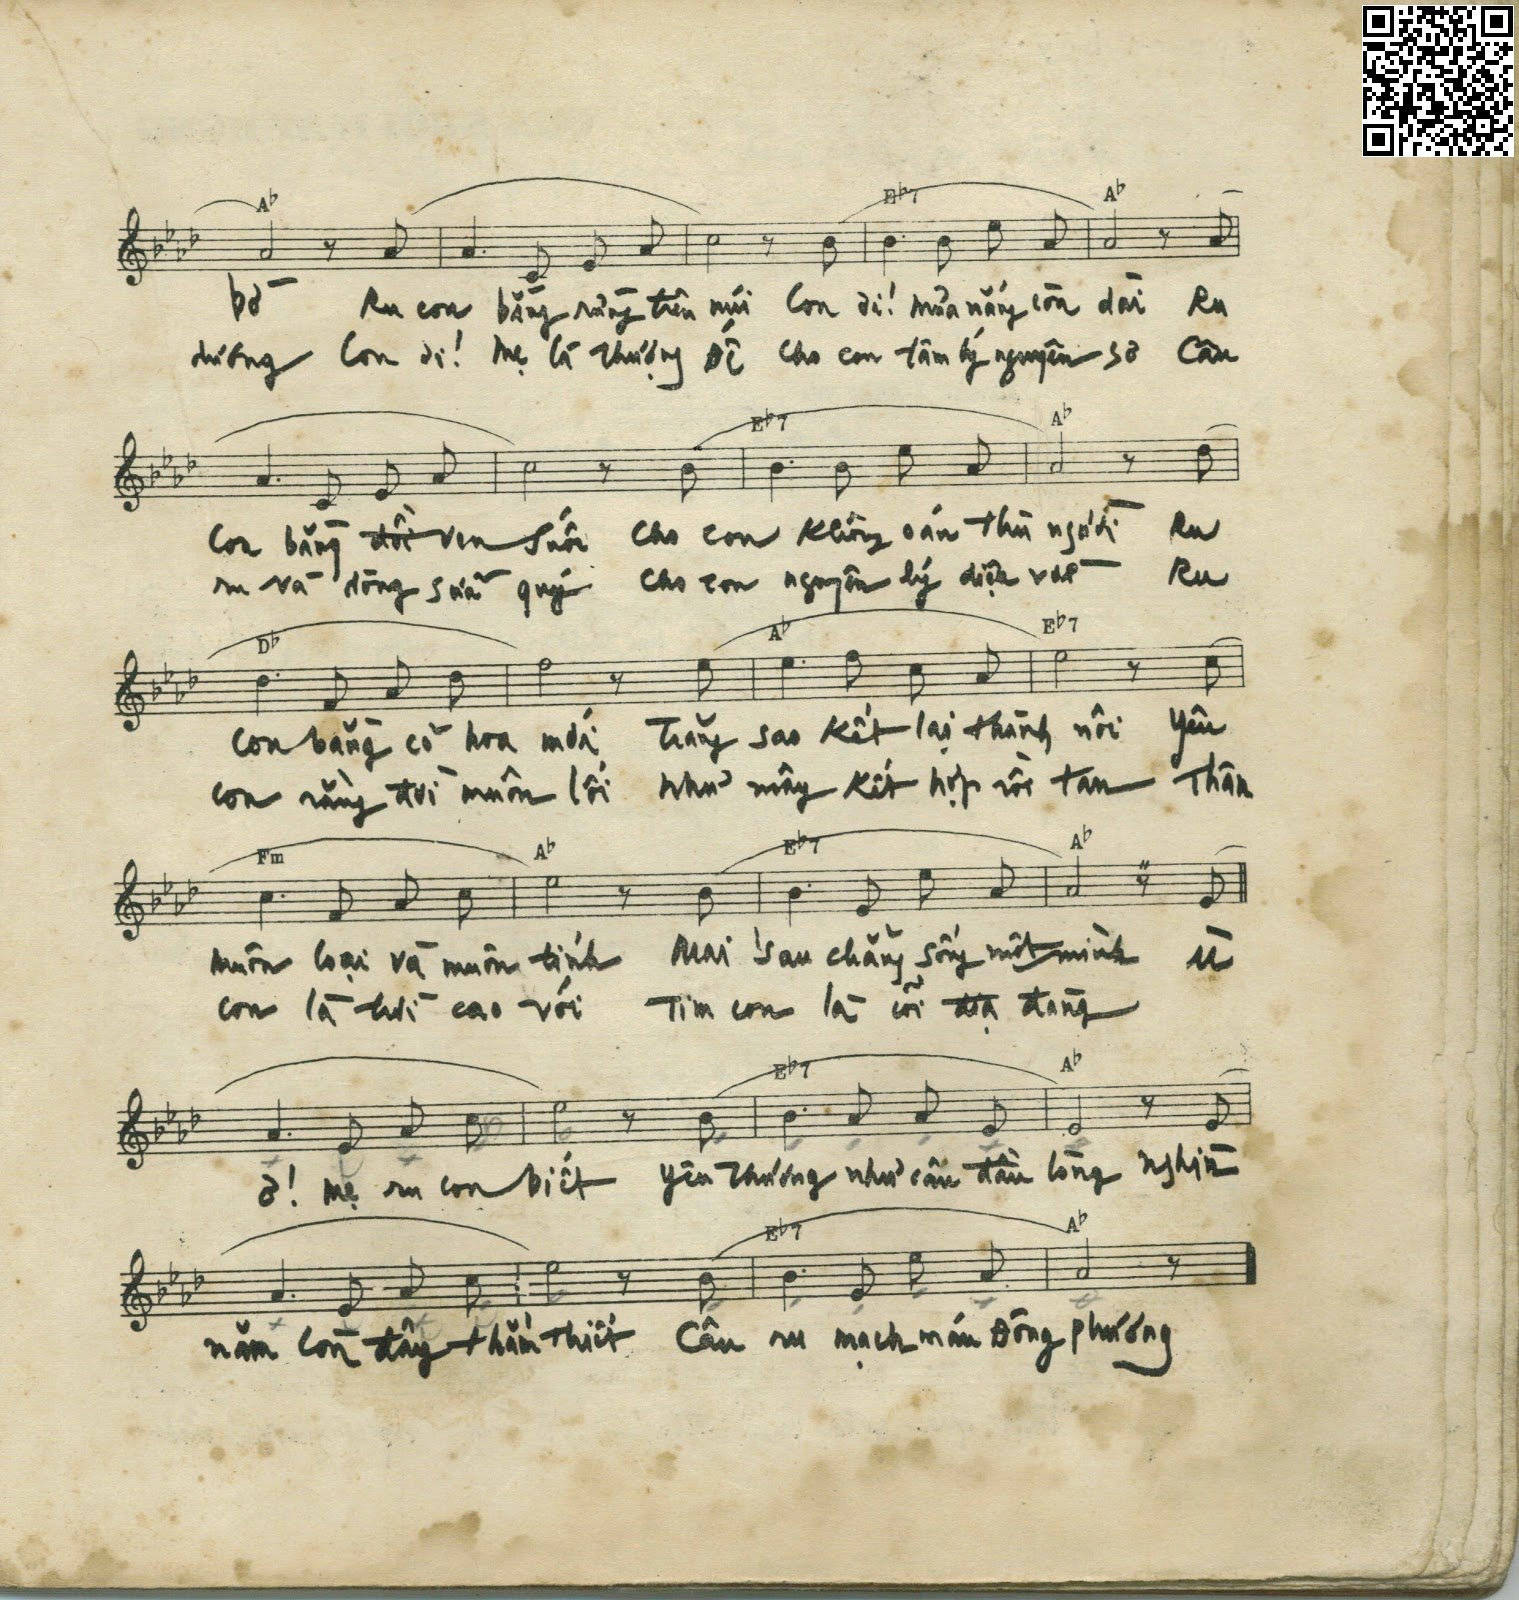 A♭ E♭7 A♭
bờ Ru con bằng rừng trên núi Con ơi! mưa nắng còn dài Ru
dương Con ơi! Mẹ là Thượng Đế Cho con tâm lý nguyên sơ Câu
E♭7 A♭
Con bằng đồi ven suối Cho con không oán thù người Ru
ru và dòng sữa quý Cho con nguyên lý diệu vời Ru
D♭ A♭ E♭7
Con bằng cỏ hoa mới Trăng sao kết lại thành nôi Yêu
con rằng đời muôn lối Như mây kết hợp rồi tan Thân
Fm A♭ E♭7 A♭
muôn loại và muôn tính Mai sau chẳng sống một mình Ù
con là trời cao vời Tim con là cõi địa đàng
E♭7 A♭
ơ! Mẹ ru con biết yêu Thương như câu đầu lòng Nghìn
E♭7 A♭
năm Còn đây thắm thiết Câu ru mạch máu Đông phương